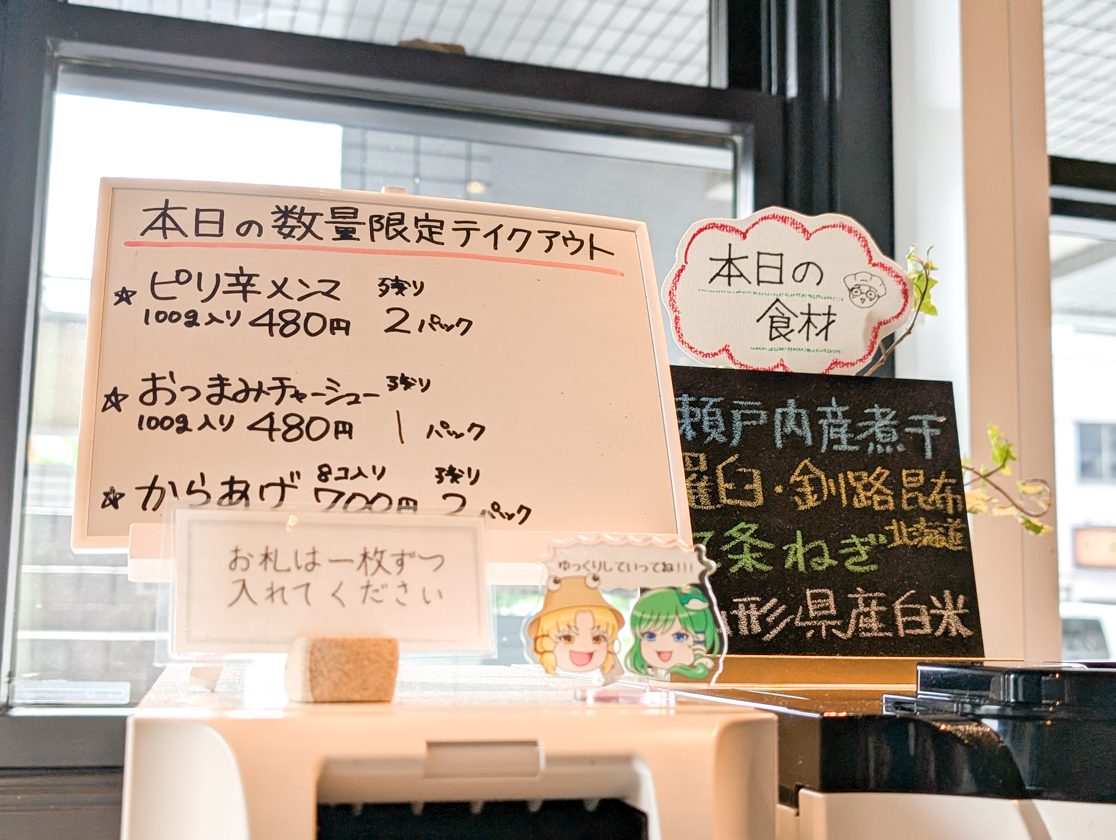 本日の数量限定テイクアウト
☆ピリ辛メンマ 残り
100g入り 480円 2パック
☆おつまみチャーシュー 残り
100g入り 480円 1パック
☆からあげ 8コ入り 700円 残り 2パック
お札は一枚ずつ
入れてください
ゆっくりしていってね!!!
本日の
食材
瀬戸内産煮干
羅臼・釧路昆布
北海道
条ねぎ
形県産白米